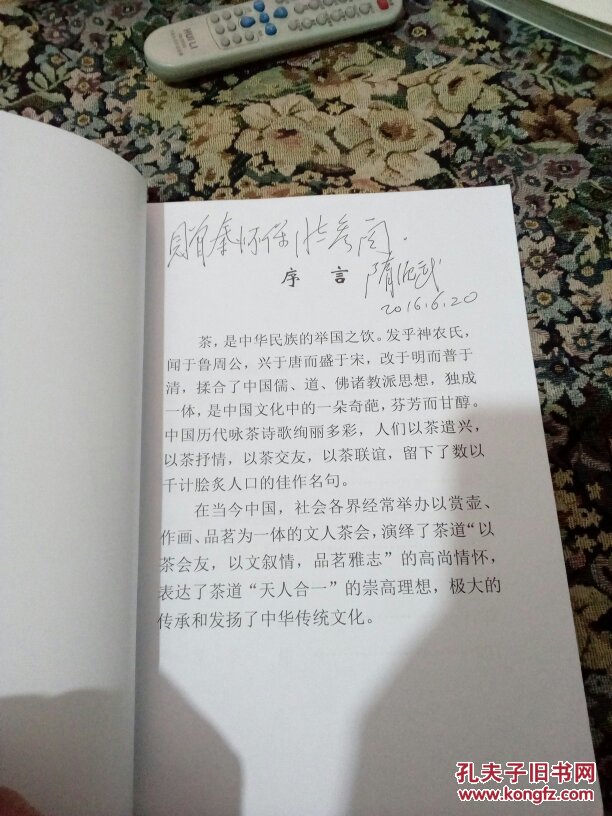 HULI
赠秦怀保惜参阅.
序 言
隋
2016.6.20
茶，是中华民族的举国之饮。发乎神农氏，
闻于鲁周公，兴于唐而盛于宋，改于明而普于
清，揉合了中国儒、道、佛诸教派思想，独成
一体，是中国文化中的一朵奇葩，芬芳而甘醇。
中国历代咏茶诗歌绚丽多彩，人们以茶遣兴，
以茶抒情，以茶交友，以茶联谊，留下了数以
千计脍炙人口的佳作名句。
在当今中国，社会各界经常举办以赏壶、
作画、品茗为一体的文人茶会，演绎了茶道“以
茶会友，以文叙情，品茗雅志”的高尚情怀，
表达了茶道“天人合一”的崇高理想，极大的
传承和发扬了中华传统文化。
孔夫子旧书网
www.kongfz.com